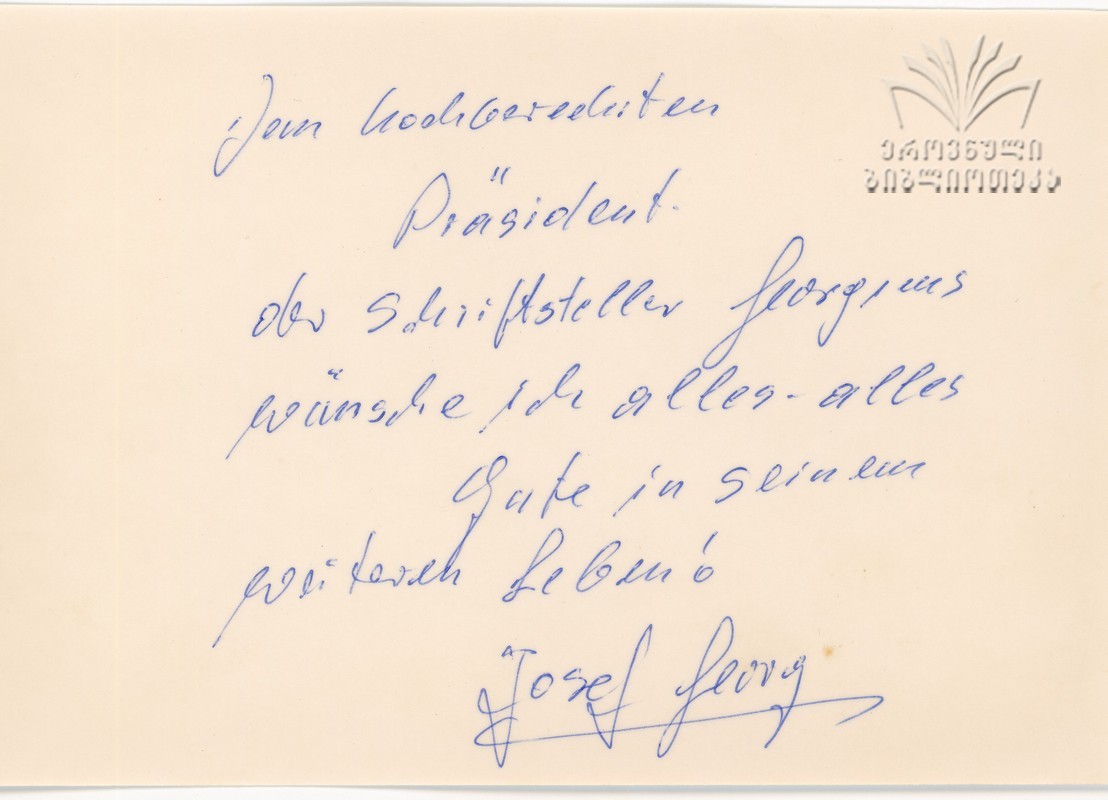 Dem hochverehrten
Präsident.
der Schriftsteller Georgiens
wünsche ich alles-alles
Gute in seinem
weiteren Leben!
Josef Georg
ეროვნული
ბიბლიოთეკა